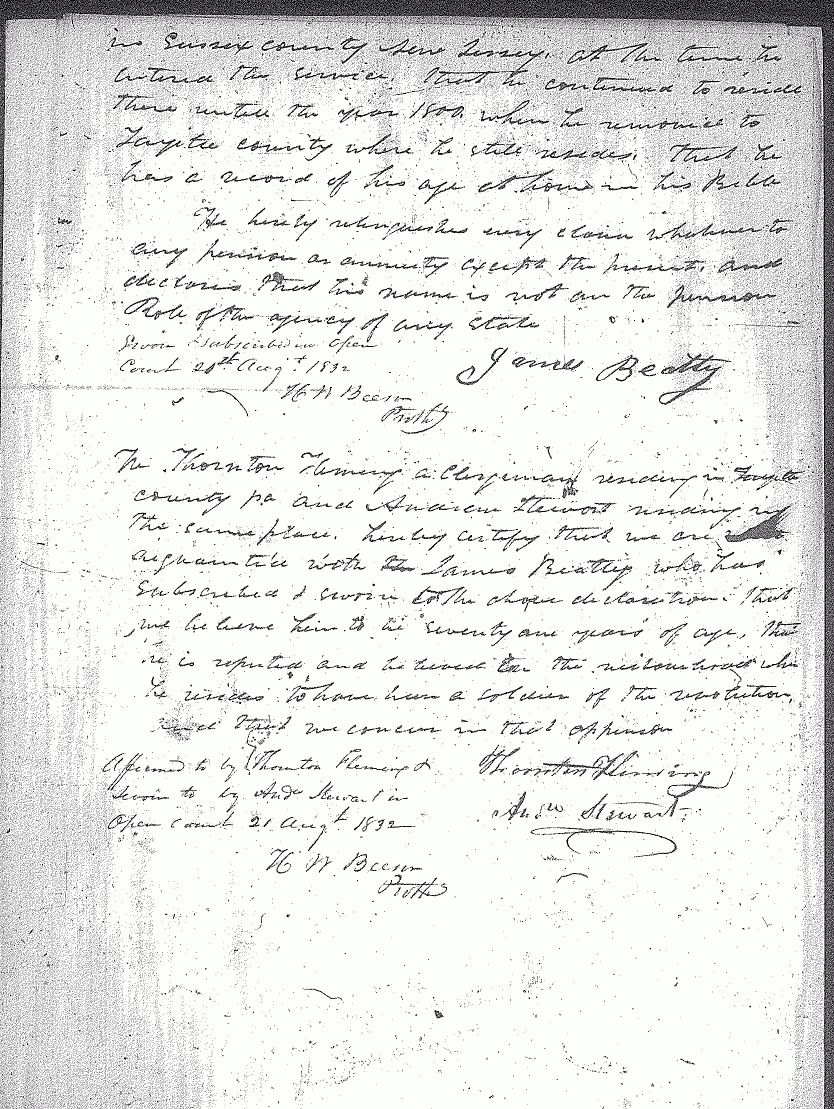 in Sussex county New Jersey, at the time he
entered the service. That he continued to reside
there untill the year 1800 when he removed to
Fayette county where he still resides. That he
has a record of his age at home in his Bible
He hereby relinquishes every claim whatever to
any pension or annuity except the present, and
declares that his name is not on the pension
Role of the agency of any State
Sworn & subscribed in open
Court 20th Augt 1832
James Beatty
H W Beeson
Prothy
We Thornton Fleming a Clergeman residing in Fayette
county pa and Andrew Stewart residing in
the same place. hereby certify that we are
acquainted with James Beatty who has
Subscribed & sworn to the above declaration. that
we believe him to be seventy one years of age, that
he is reputed and believed in the neibourhood whe
he resides to have been a soldier of the revolution,
and that we concur in that oppinion
Affirmed to by Thornton Fleming &
sworn to by Andw Stewart in
Open Court 21 Augt 1832
Thornton Fleming
Andw Stewart.
H W Beeson
Prothy